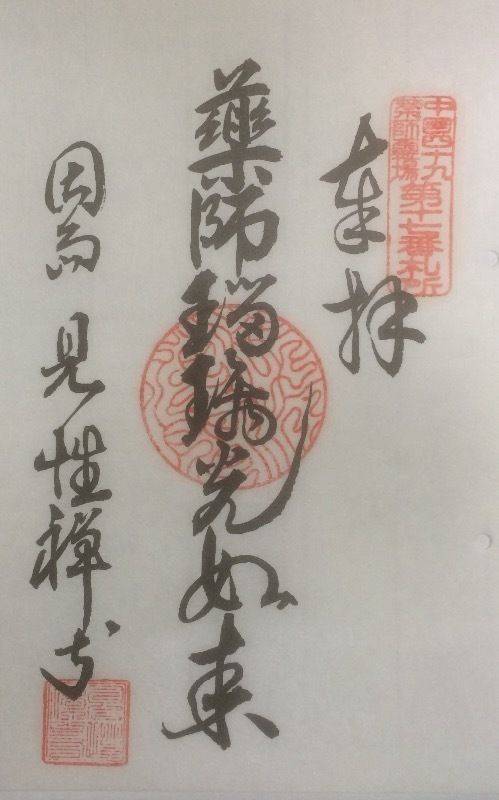 中国四十九
薬師霊場
第十七番札所
奉拝
藥師瑠璃光如来
因島 見性禅寺